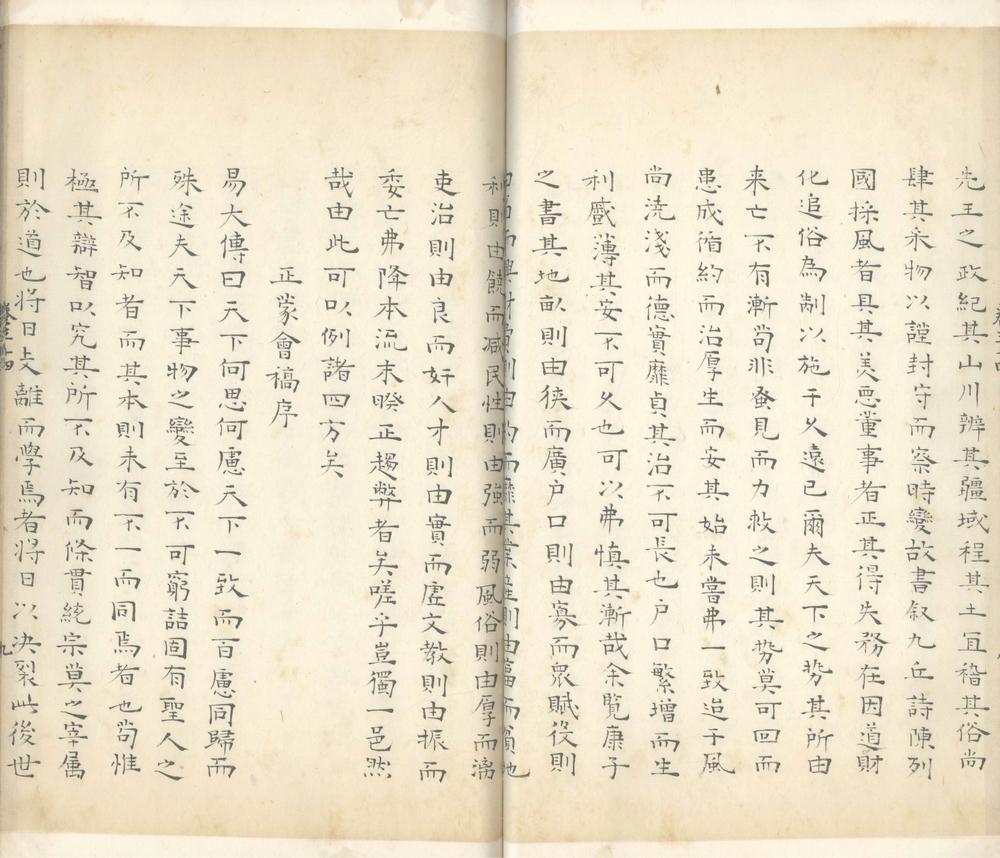 先王之政紀其山川辨其疆域程其土宜稽其俗尚
肆其采物以謹封守而察時變故書叙九丘詩陳列
國採風者具其美惡董事者正其得失務在因道財
化追俗為制以施于久遠已爾夫天下之勢其所由
来亡不有漸苟非蚤見而力救之則其勢莫可回而
患成循約而治厚生而安其始未嘗弗一致迨于風
尚澆淺而德實靡貞其治不可長也户口繁增而生
利慼薄其安不可久也可以弗慎其漸哉余覧康子
之書其地畝則由狹而廣户口則由寡而衆賦役則
由而與財則由約而靡其業産則由富而貧地
利則由饒而减民性則由強而弱風俗則由厚而漓
吏治則由良而奸人才則由實而虚文教則由振而
委亡弗降本流末暌正趨弊者矣嗟乎豈獨一邑然
哉由此可以例諸四方矣
正蒙會稿序
易大傳曰天下何思何慮天下一致而百慮同歸而
殊途夫天下事物之變至於不可窮詰固有聖人之
所不及知者而其本則未有不一而同焉者也苟惟
極其辯智以究其所不及知而條貫統宗莫之宰属
則於道也將日支離而學焉者將日以决裂此後世